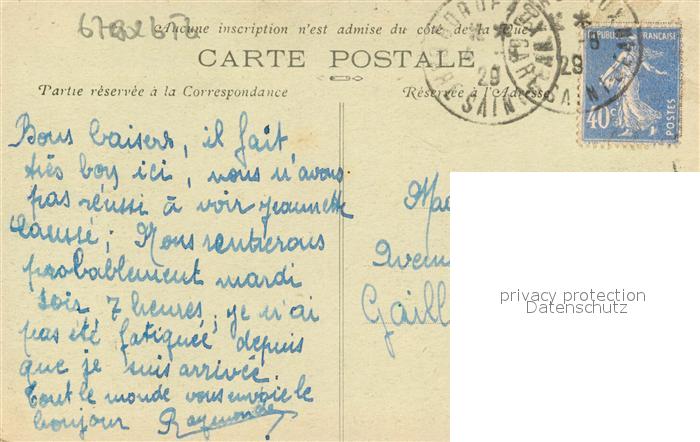 Aucune inscription n'est admise du côté de la Vue
CARTE POSTALE
Partie réservée à la Correspondance
Réservée à l'Adresse
BORDEAUX
29
SAINT-JEAN
29
RÉPUBLIQUE FRANÇAISE
40c
POSTES
Bons baisers, il fait
très bon ici, nous n'avons
pas réussi à voir Jeannette
; Nous rentrerons
probablement mardi
soir 7 heures, je n'ai
pas été fatiguée depuis
que je suis arrivée
Tout le monde vous envoie le
bonjour Raymonde
Mad
Avenu
Gaill
privacy protection
Datenschutz